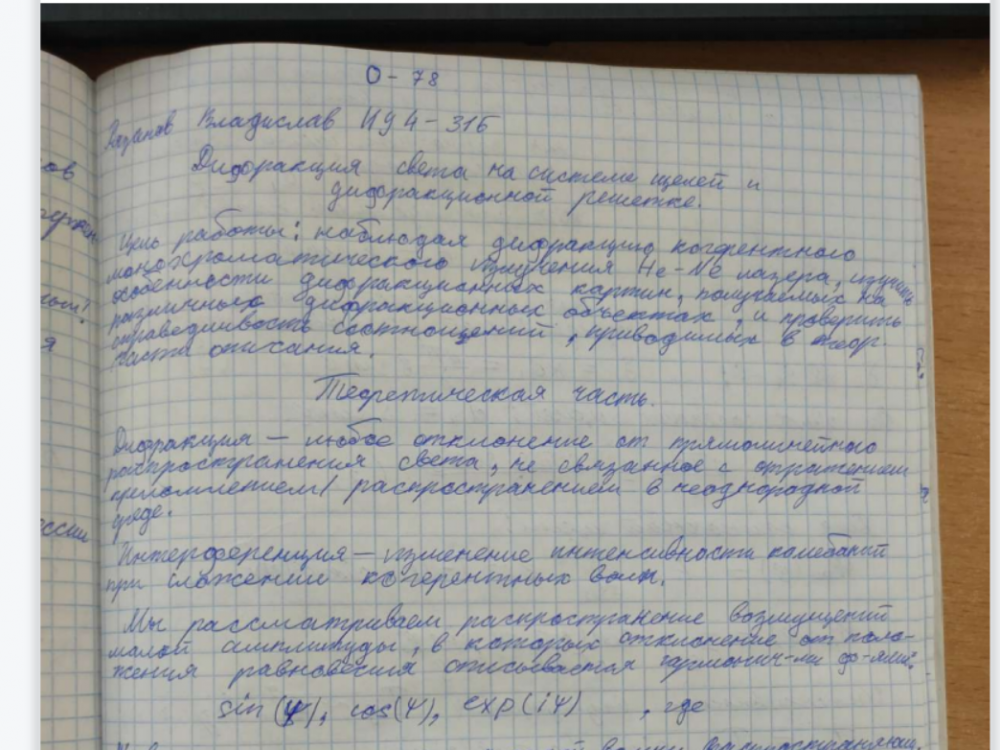 О - 78
Владислав ИУ4-31Б
Дифракция света на системе щелей и
дифракционной решетке.
Цель работы: наблюдая дифракцию когерентного
монохроматического излучения He-Ne лазера, изучить
особенности дифракционных картин, получаемых на
различных дифракционных объектах, и проверить
справедливость соотношений, приводимых в теор.
части описания.
Теоретическая часть.
Дифракция — любое отклонение от прямолинейного
распространения света, не связанное с отражением
преломлением/ распространением в неоднородной
среде.
Интерференция — изменение интенсивности колебаний
при сложении когерентных волн.
Мы рассматриваем распространение возмущений
малой амплитуды, в которых отклонение от поло-
жения равновесия описывается гармонич-ми ф-ями:
sin(Ψ), cos(Ψ), exp(iΨ) , где
ов
ым?
я
ессии